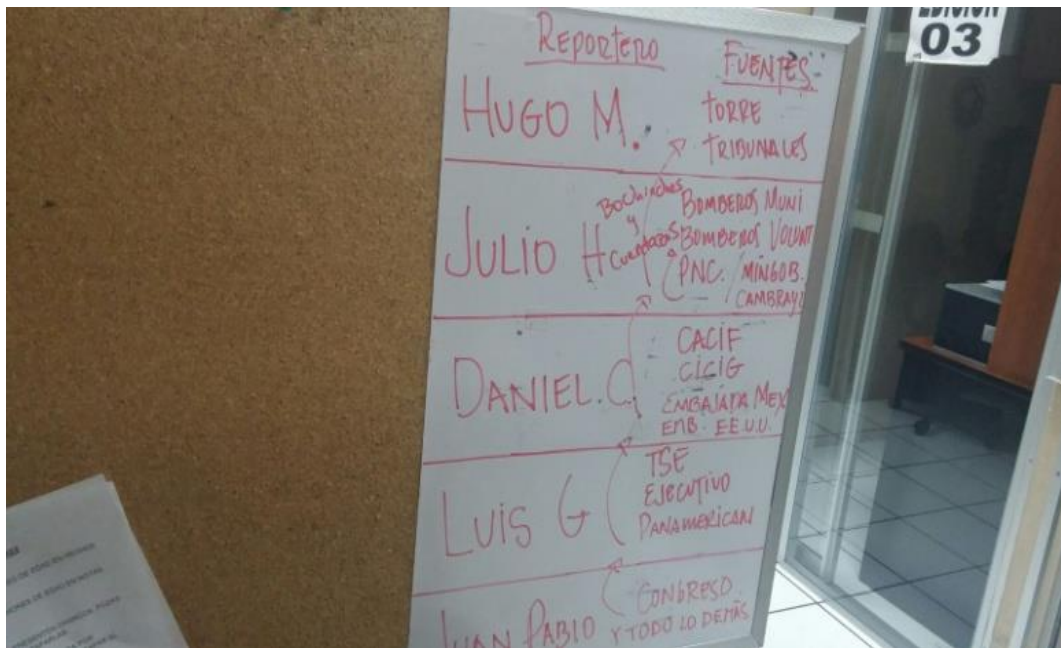 EDICION
03
Reportero FUENTES
HUGO M.
TORRE
TRIBUNALES
JULIO H
Bochinches
y
Cuentazos
BOMBEROS MUNI
BOMBEROS VOLUNT
PNC. / MINGOB.
CAMBRAY
DANIEL. C
CACIF
CICIG
EMBAJADA MEX
EMB. EE.U.U.
LUIS G
TSE
EJECUTIVO
PANAMERICAN
JUAN PABLO
CONGRESO
Y TODO LO DEMÁS